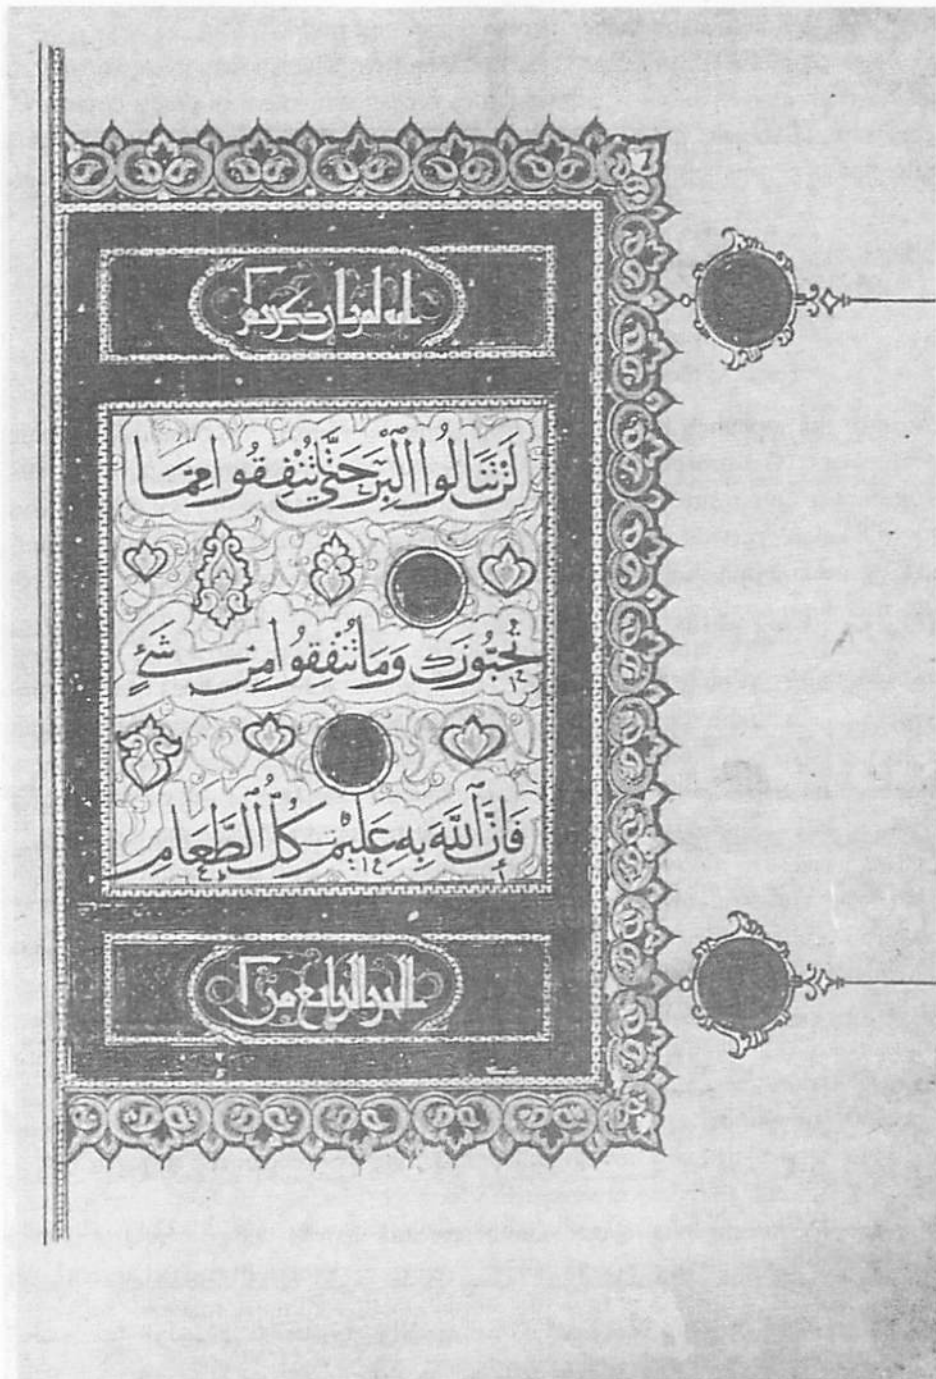 انه لقران كريم
لَنْ تَنَالُوا الْبِرَّ حَتَّى تُنْفِقُوا مِمَّا
تُحِبُّونَ وَمَا تُنْفِقُوا مِنْ شَيْءٍ
فَإِنَّ اللَّهَ بِهِ عَلِيمٌ كُلُّ الطَّعَامِ
الرابع من